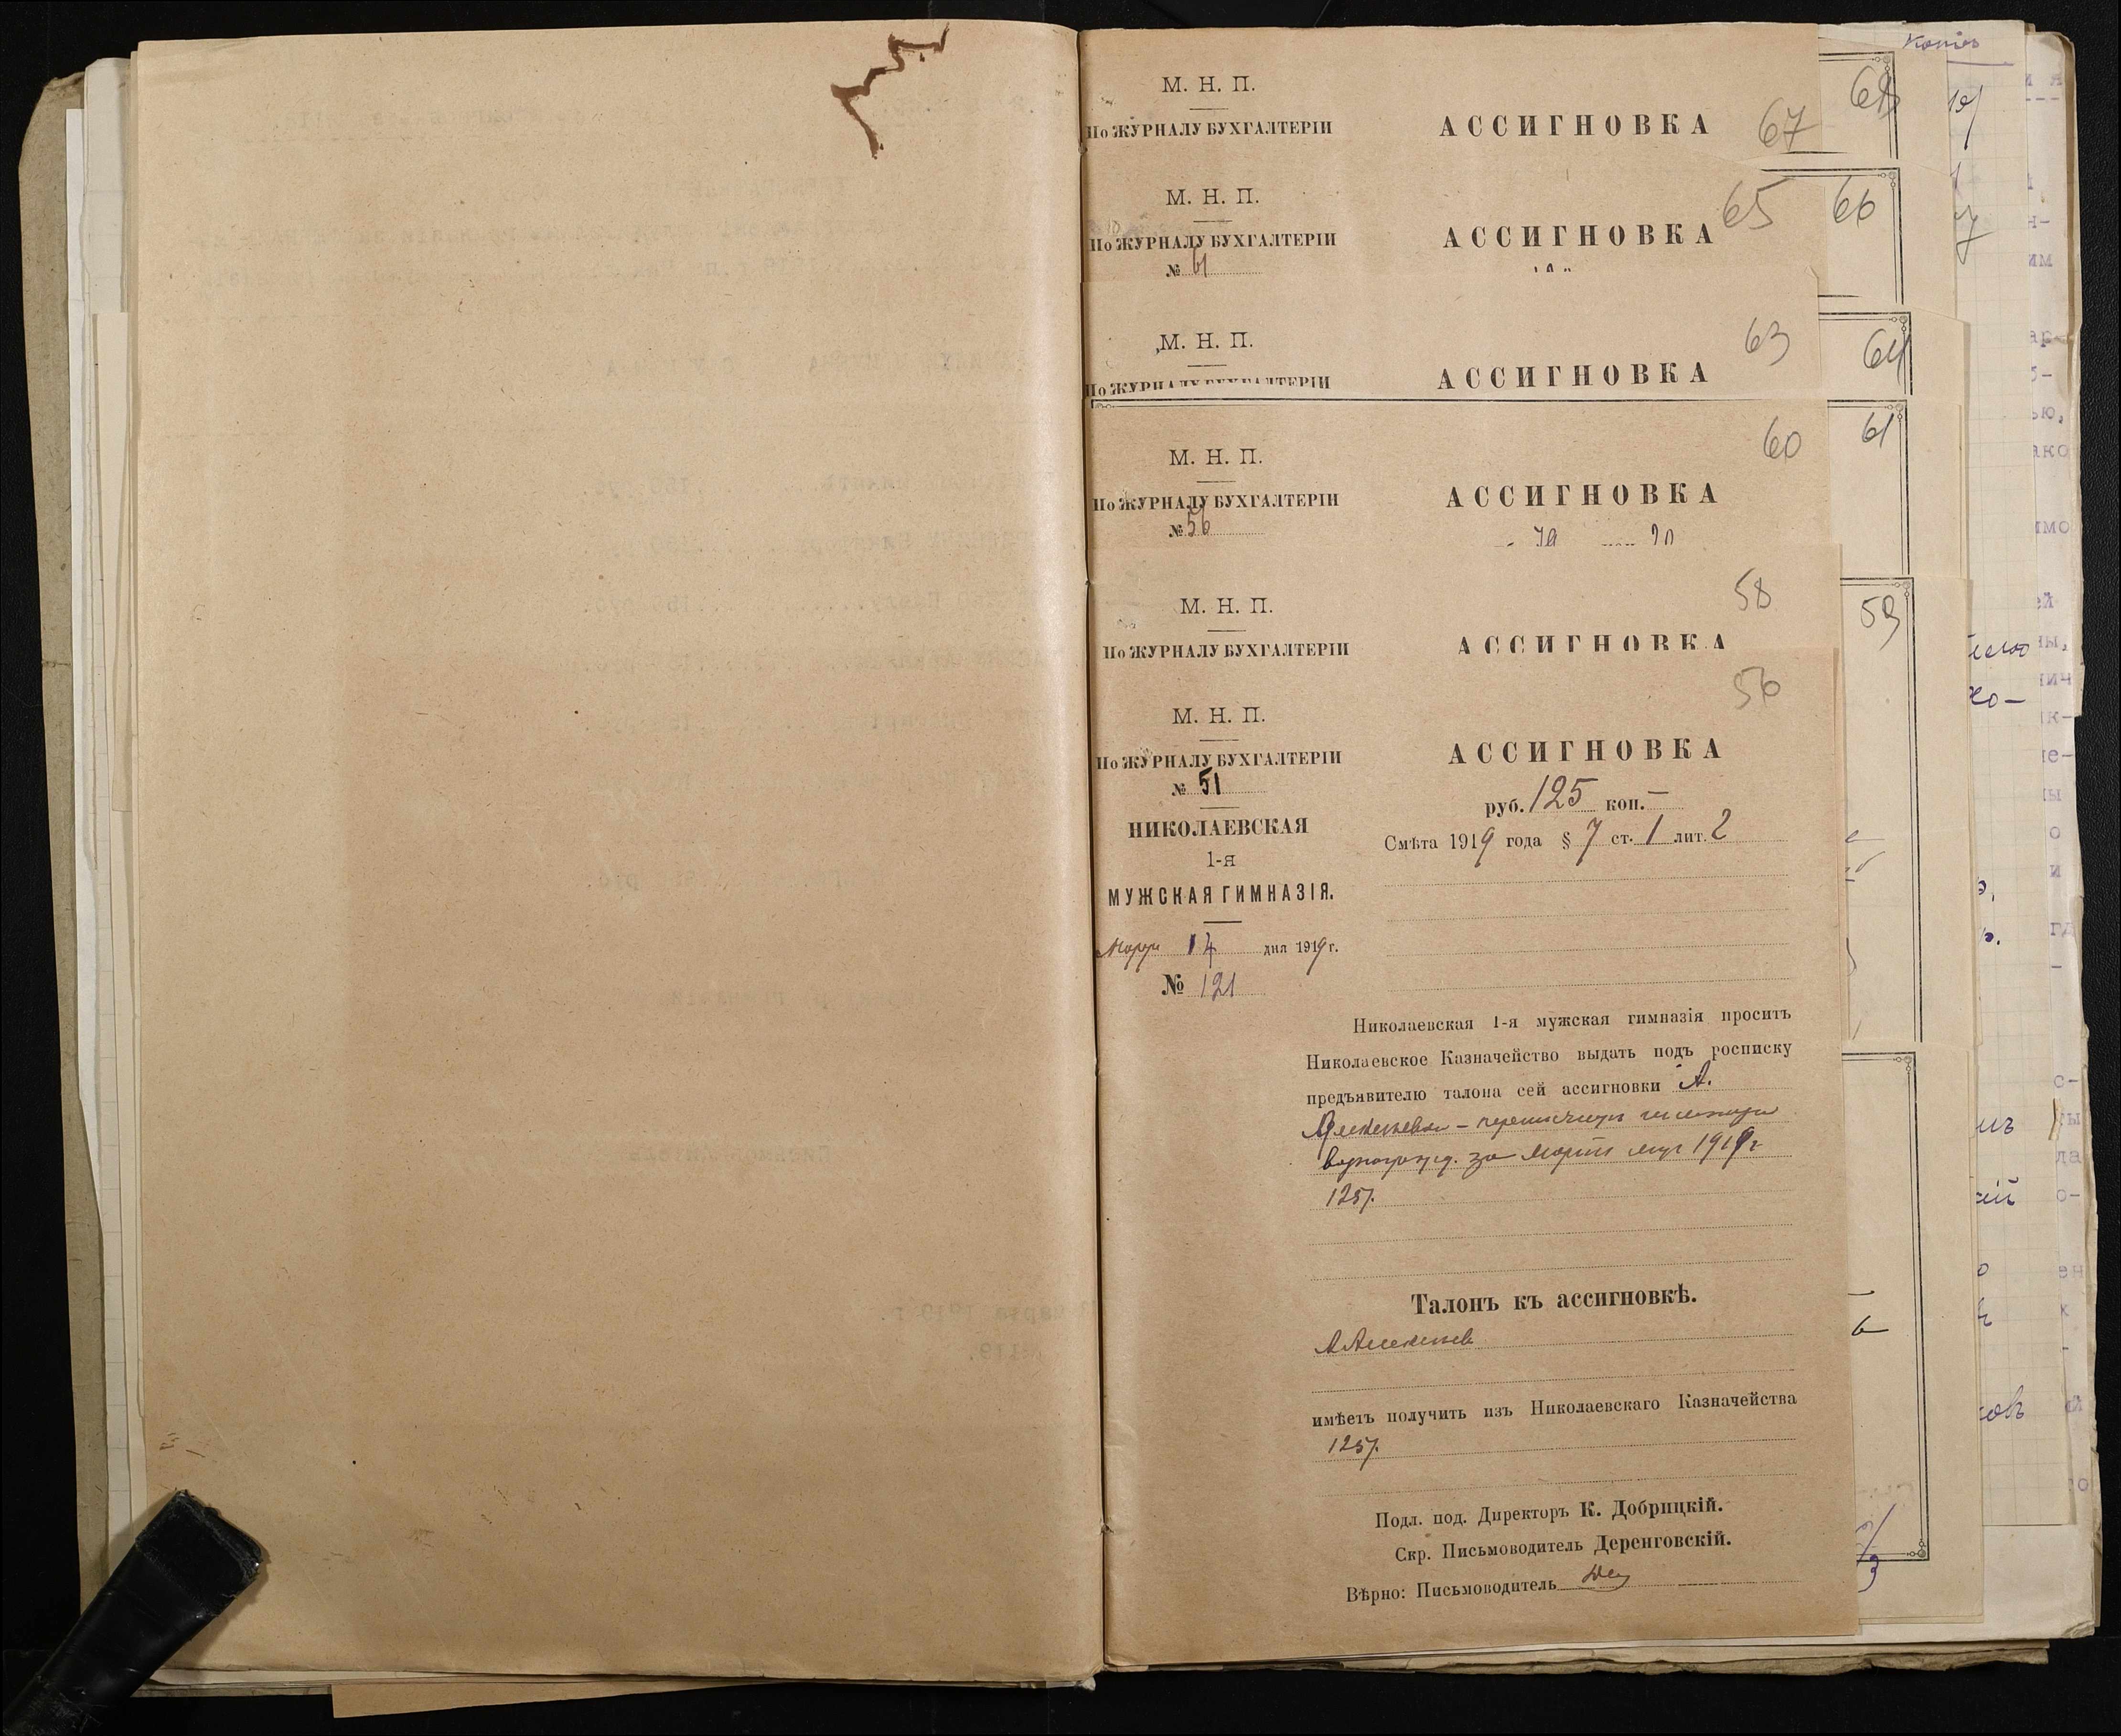 М. Н. П.
По ЖУРНАЛУ БУХГАЛТЕРІИ
АССИГНОВКА
67
68
М. Н. П.
По ЖУРНАЛУ БУХГАЛТЕРІИ
№ 61
АССИГНОВКА
65
66
М. Н. П.
По ЖУРНАЛУ БУХГАЛТЕРІИ
АССИГНОВКА
63
64
М. Н. П.
По ЖУРНАЛУ БУХГАЛТЕРІИ
№ 56
АССИГНОВКА
60
61
М. Н. П.
По ЖУРНАЛУ БУХГАЛТЕРІИ
АССИГНОВКА
58
59
56
М. Н. П.
По ЖУРНАЛУ БУХГАЛТЕРІИ
№ 51
НИКОЛАЕВСКАЯ
1-я
МУЖСКАЯ ГИМНАЗІЯ.
Марта 14 дня 1919 г.
№ 121
АССИГНОВКА
руб. 125 коп. —
Смѣта 1919 года § 7 ст. 1 лит. 2
Николаевская 1-я мужская гимназія проситъ
Николаевское Казначейство выдать подъ росписку
предъявителю талона сей ассигновки А.
за Мартъ 1919 г
125 р.
Талонъ къ ассигновкѣ.
имѣетъ получить изъ Николаевскаго Казначейства
125 р.
Подл. под. Директоръ К. Добрицкій.
Скр. Письмоводитель Деренговскій.
Вѣрно: Письмоводитель